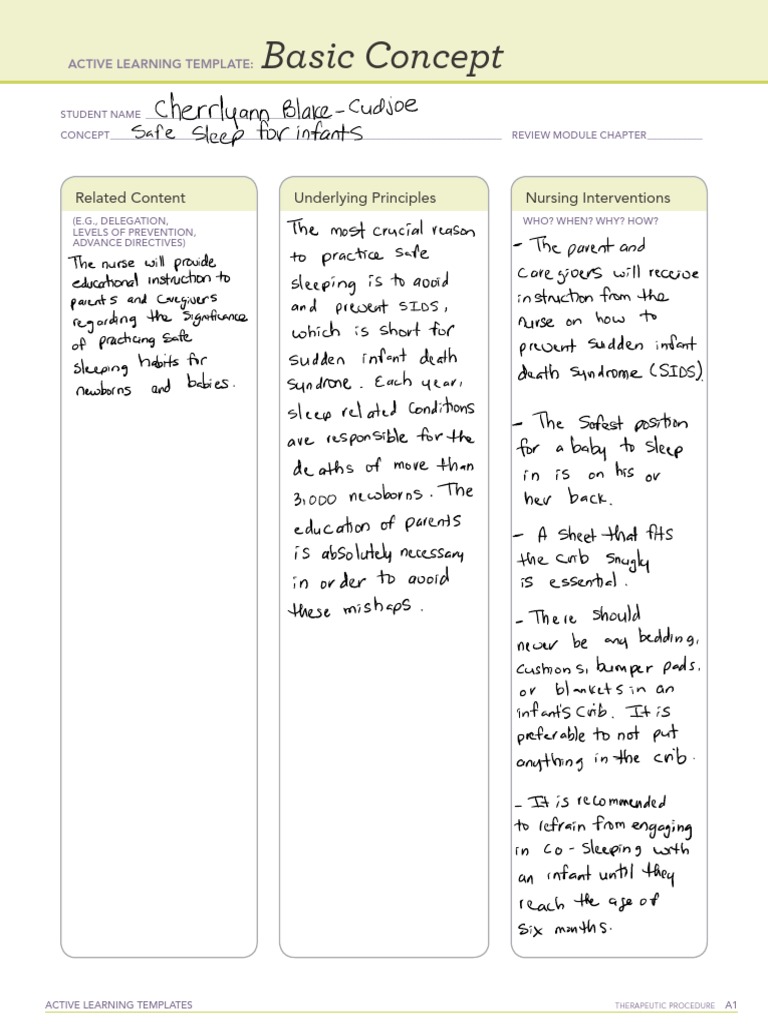 ACTIVE LEARNING TEMPLATE: Basic Concept
STUDENT NAME Cherrlyann Blake-Cudjoe
CONCEPT Safe Sleep for infants REVIEW MODULE CHAPTER
Related Content
(E.G., DELEGATION,
LEVELS OF PREVENTION,
ADVANCE DIRECTIVES)
The nurse will provide
educational instruction to
parents and Caregivers
regarding the Significance
of practicing Safe
Sleeping habits for
newborns and babies.
Underlying Principles
The most crucial reason
to practice safe
sleeping is to avoid
and prevent SIDS,
which is short for
sudden infant death
Syndrone. Each year,
sleep related conditions
are responsible for the
deaths of more than
3,000 newborns. The
education of parents
is absolutely necessary
in order to avoid
these mishaps.
Nursing Interventions
WHO? WHEN? WHY? HOW?
- The parent and
Caregivers will receive
instruction from the
nurse on how to
prevent sudden infant
death syndrome (SIDS).
- The Safest position
for a baby to sleep
in is on his or
her back.
- A Sheet that fits
the crib snugly
is essential.
- There should
never be any bedding,
Cushions, bumper pads,
or blankets in an
infant's Crib. It is
preferable to not put
anything in the crib.
- It is recommended
to refrain from engaging
in Co-Sleeping with
an infant until they
reach the age of
Six months.
ACTIVE LEARNING TEMPLATES THERAPEUTIC PROCEDURE A1